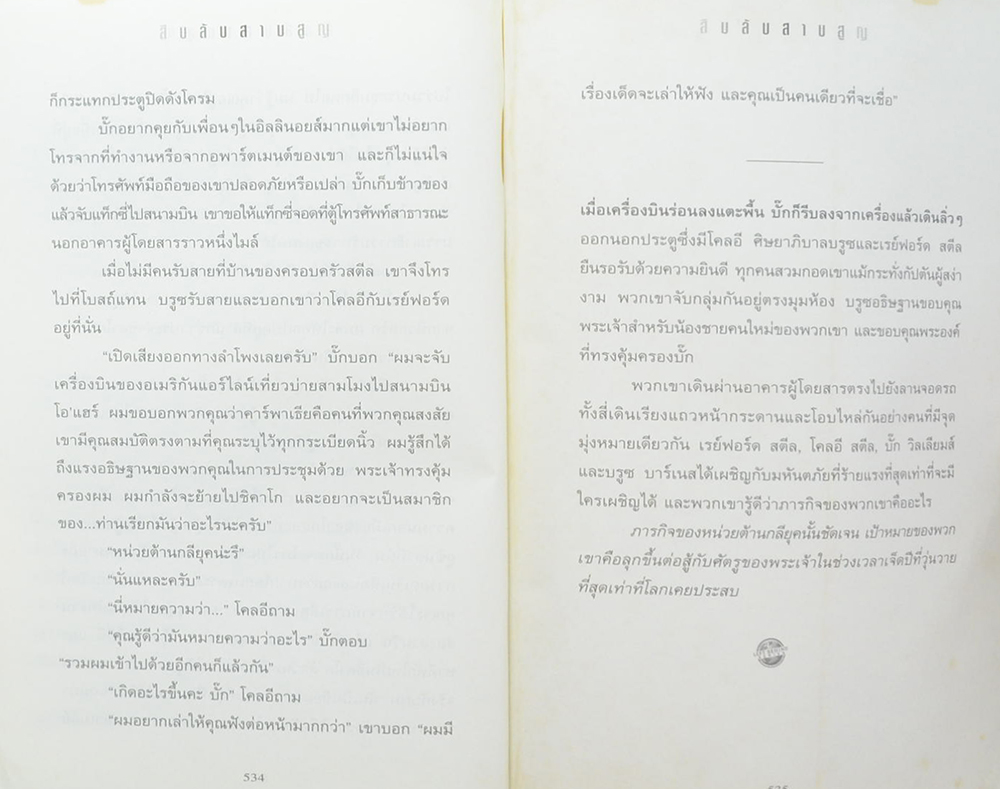 สิบลับสาบสูญ
ก็กระแทกประตูปิดดังโครม
บั๊กอยากคุยกับเพื่อนๆในอิลลินอยส์มากแต่เขาไม่อยาก
โทรจากที่ทำงานหรือจากอพาร์ตเมนต์ของเขา และก็ไม่แน่ใจ
ด้วยว่าโทรศัพท์มือถือของเขาปลอดภัยหรือเปล่า บั๊กเก็บข้าวของ
แล้วจับแท็กซี่ไปสนามบิน เขาขอให้แท็กซี่จอดที่ตู้โทรศัพท์สาธารณะ
นอกอาคารผู้โดยสารราวหนึ่งไมล์
เมื่อไม่มีคนรับสายที่บ้านของครอบครัวสตีล เขาจึงโทร
ไปที่โบสถ์แทน บรูซรับสายและบอกเขาว่าโคลอีกับเรย์ฟอร์ด
อยู่ที่นั่น
“เปิดเสียงออกทางลำโพงเลยครับ” บั๊กบอก “ผมจะจับ
เครื่องบินของอเมริกันแอร์ไลน์เที่ยวบ่ายสามโมงไปสนามบิน
โอ'แฮร์ ผมขอบอกพวกคุณว่าคาร์พาเธียคือคนที่พวกคุณสงสัย
เขามีคุณสมบัติตรงตามที่คุณระบุไว้ทุกกระเบียดนิ้ว ผมรู้สึกได้
ถึงแรงอธิษฐานของพวกคุณในการประชุมด้วย พระเจ้าทรงคุ้ม
ครองผม ผมกำลังจะย้ายไปชิคาโก และอยากจะเป็นสมาชิก
ของ...ท่านเรียกมันว่าอะไรนะครับ”
“หน่วยต้านกลียุคน่ะรึ”
“นั่นแหละครับ”
“นี่หมายความว่า...” โคลอีถาม
“คุณรู้ดีว่ามันหมายความว่าอะไร” บั๊กตอบ
“รวมผมเข้าไปด้วยอีกคนก็แล้วกัน”
“เกิดอะไรขึ้นคะ บั๊ก” โคลอีถาม
“ผมอยากเล่าให้คุณฟังต่อหน้ามากกว่า” เขาบอก “ผมมี
534
สิบลับสาบสูญ
เรื่องเด็ดจะเล่าให้ฟัง และคุณเป็นคนเดียวที่จะเชื่อ”
เมื่อเครื่องบินร่อนลงแตะพื้น บั๊กก็รีบลงจากเครื่องแล้วเดินลิ่วๆ
ออกนอกประตูซึ่งมีโคลอี ศิษยาภิบาลบรูซและเรย์ฟอร์ด สตีล
ยืนรอรับด้วยความยินดี ทุกคนสวมกอดเขาแม้กระทั่งกัปตันผู้สง่า
งาม พวกเขาจับกลุ่มกันอยู่ตรงมุมห้อง บรูซอธิษฐานขอบคุณ
พระเจ้าสำหรับน้องชายคนใหม่ของพวกเขา และขอบคุณพระองค์
ที่ทรงคุ้มครองบั๊ก
พวกเขาเดินผ่านอาคารผู้โดยสารตรงไปยังลานจอดรถ
ทั้งสี่เดินเรียงแถวหน้ากระดานและโอบไหล่กันอย่างคนที่มีจุด
มุ่งหมายเดียวกัน เรย์ฟอร์ด สตีล, โคลอี สตีล, บั๊ก วิลเลียมส์
และบรูซ บาร์เนสได้เผชิญกับมหันตภัยที่ร้ายแรงที่สุดเท่าที่จะมี
ใครเผชิญได้ และพวกเขารู้ดีว่าภารกิจของพวกเขาคืออะไร
ภารกิจของหน่วยต้านกลียุคนั้นชัดเจน เป้าหมายของพวก
เขาคือลุกขึ้นต่อสู้กับศัตรูของพระเจ้าในช่วงเวลาเจ็ดปีที่วุ่นวาย
ที่สุดเท่าที่โลกเคยประสบ